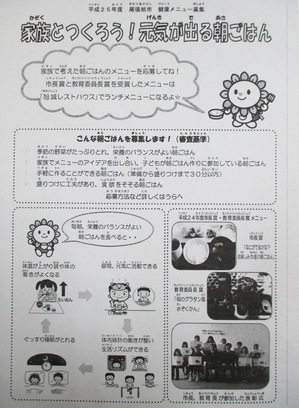 平成２５年度　尾張旭市　健康メニュー募集
家族とつくろう！元気が出る朝ごはん
家族で考えた朝ごはんのメニューを応募してね！
市長賞と教育委員長賞を受賞したメニューは
「旭城レストハウス」でランチメニューになるよ☆
こんな朝ごはんを募集します！（審査基準）
季節の野菜がたっぷりとれ、栄養のバランスがよい朝ごはん
家族でメニューのアイデアを出し合い、子どもが朝ごはん作りに参加している朝ごはん
手軽に作ることができる朝ごはん（準備から盛りつけまで３０分以内）
盛りつけに工夫があり、食欲をそそる朝ごはん
応募方法など詳しくはうらへ
毎朝、栄養のバランスがよい
朝ごはんを食べると・・
体温が上がり頭や体の
働きがよくなる
昼間、元気に活動できる
ぐっすり睡眠がとれる
体内時計の働きが整い
生活リズムができる
平成２４年度市長賞・教育委員長賞メニュー
市長賞
教育委員長賞
「朝のグラタン風
水ぎくかん」
市長、教育長が参加した表彰式